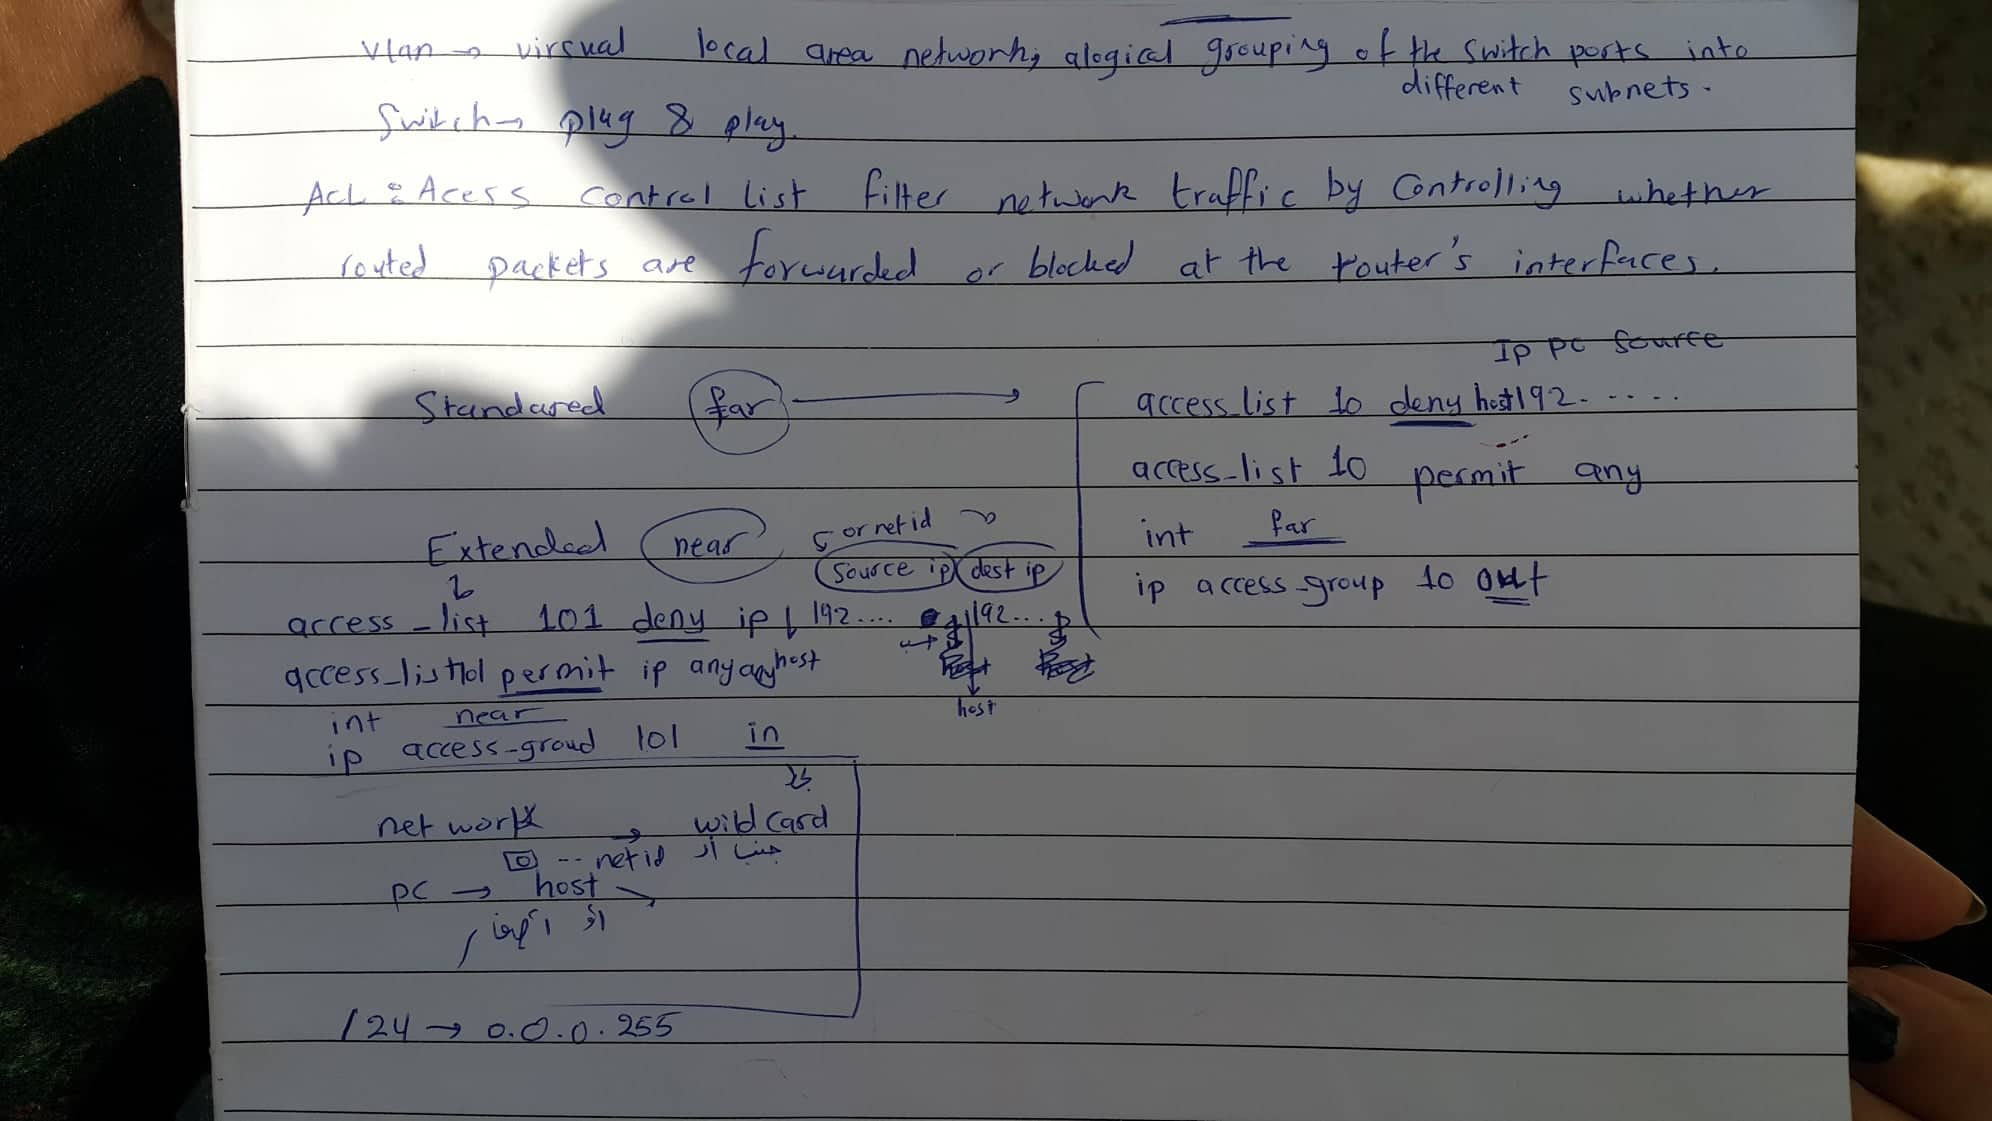 Vlan → virsual local area network, alogical grouping of the switch ports into
different subnets.
Switch → plug & play.
ACL : Acess control list filter network traffic by Controlling whether
routed packets are forwarded or blocked at the router's interfaces.
Ip PC Source
Standared far →
access_list 10 deny host 192. .....
access_list 10 permit any
int far
ip access_group 10 out
Extended near
or net id
source ip dest ip
access_list 101 deny ip 192.... 192...
host
access_list 101 permit ip any any host
int near
ip access_groud 101 in
network → wild card
-- net id جنب ال
PC → host
/24 → 0.0.0.255